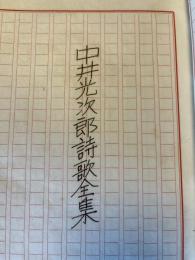 中井光次郎詩歌全集